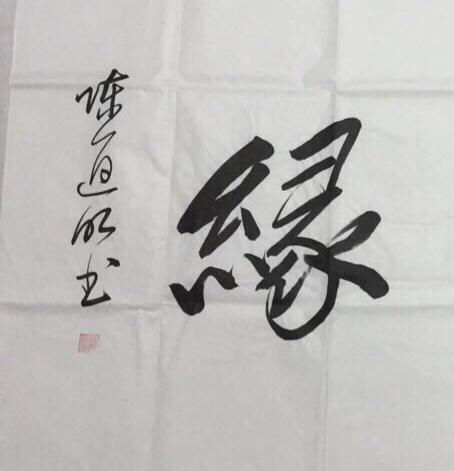 緣
陈道明书